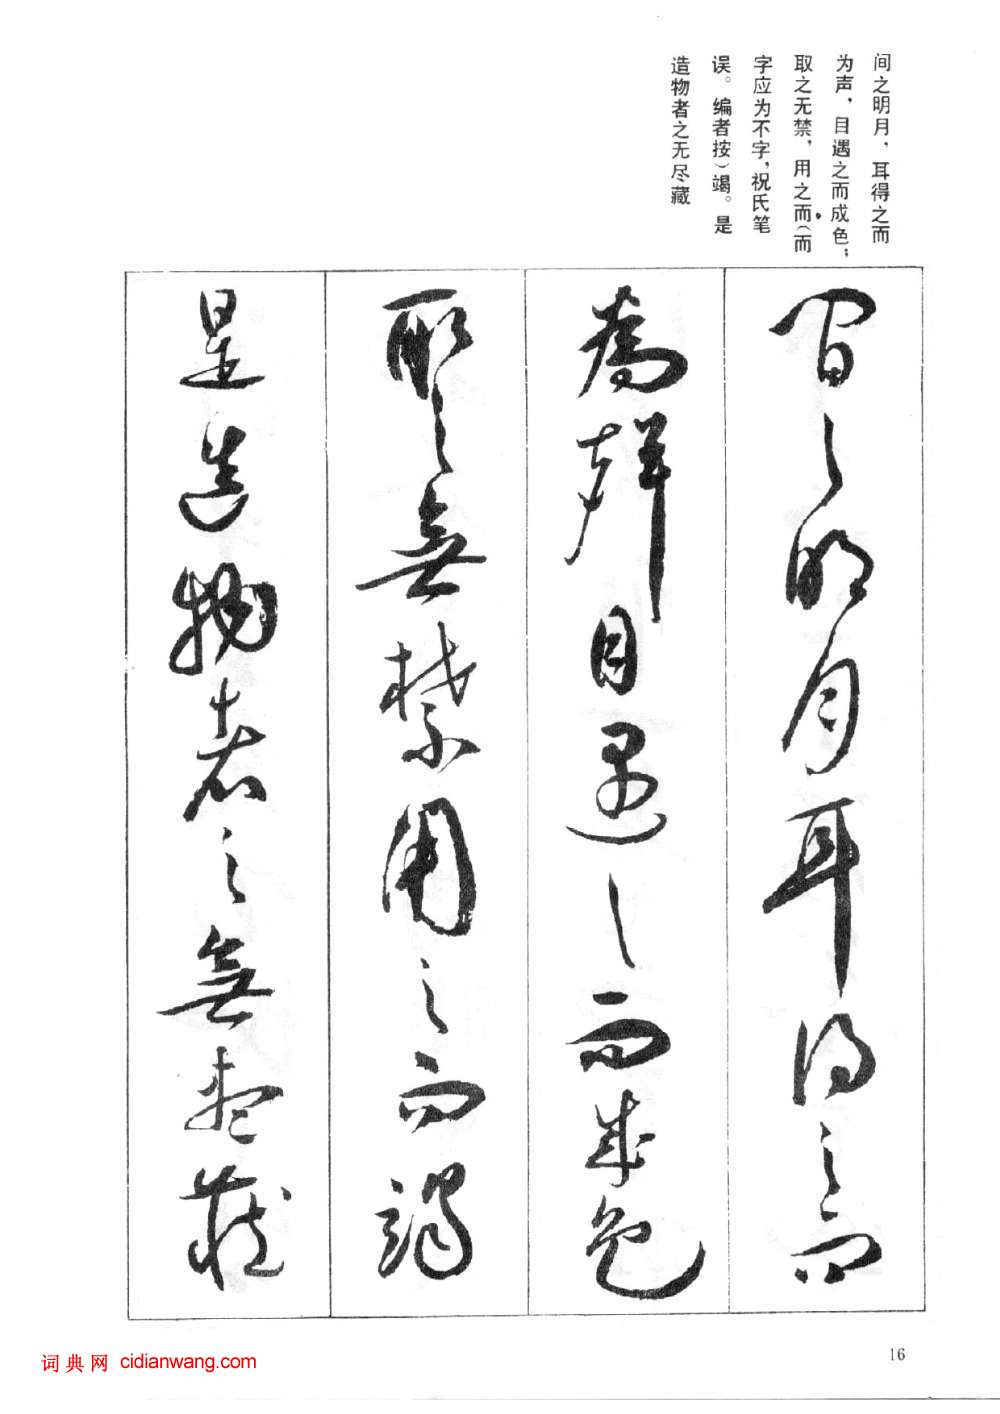 间之明月，耳得之而
为声，目遇之而成色；
取之无禁，用之而（而
字应为不字，祝氏笔
误。编者按）竭。是
造物者之无尽藏
間之明月耳得之而
為聲目遇之而成色
取之無禁用之而竭
是造物者之無盡藏
16
词典网 cidianwang.com